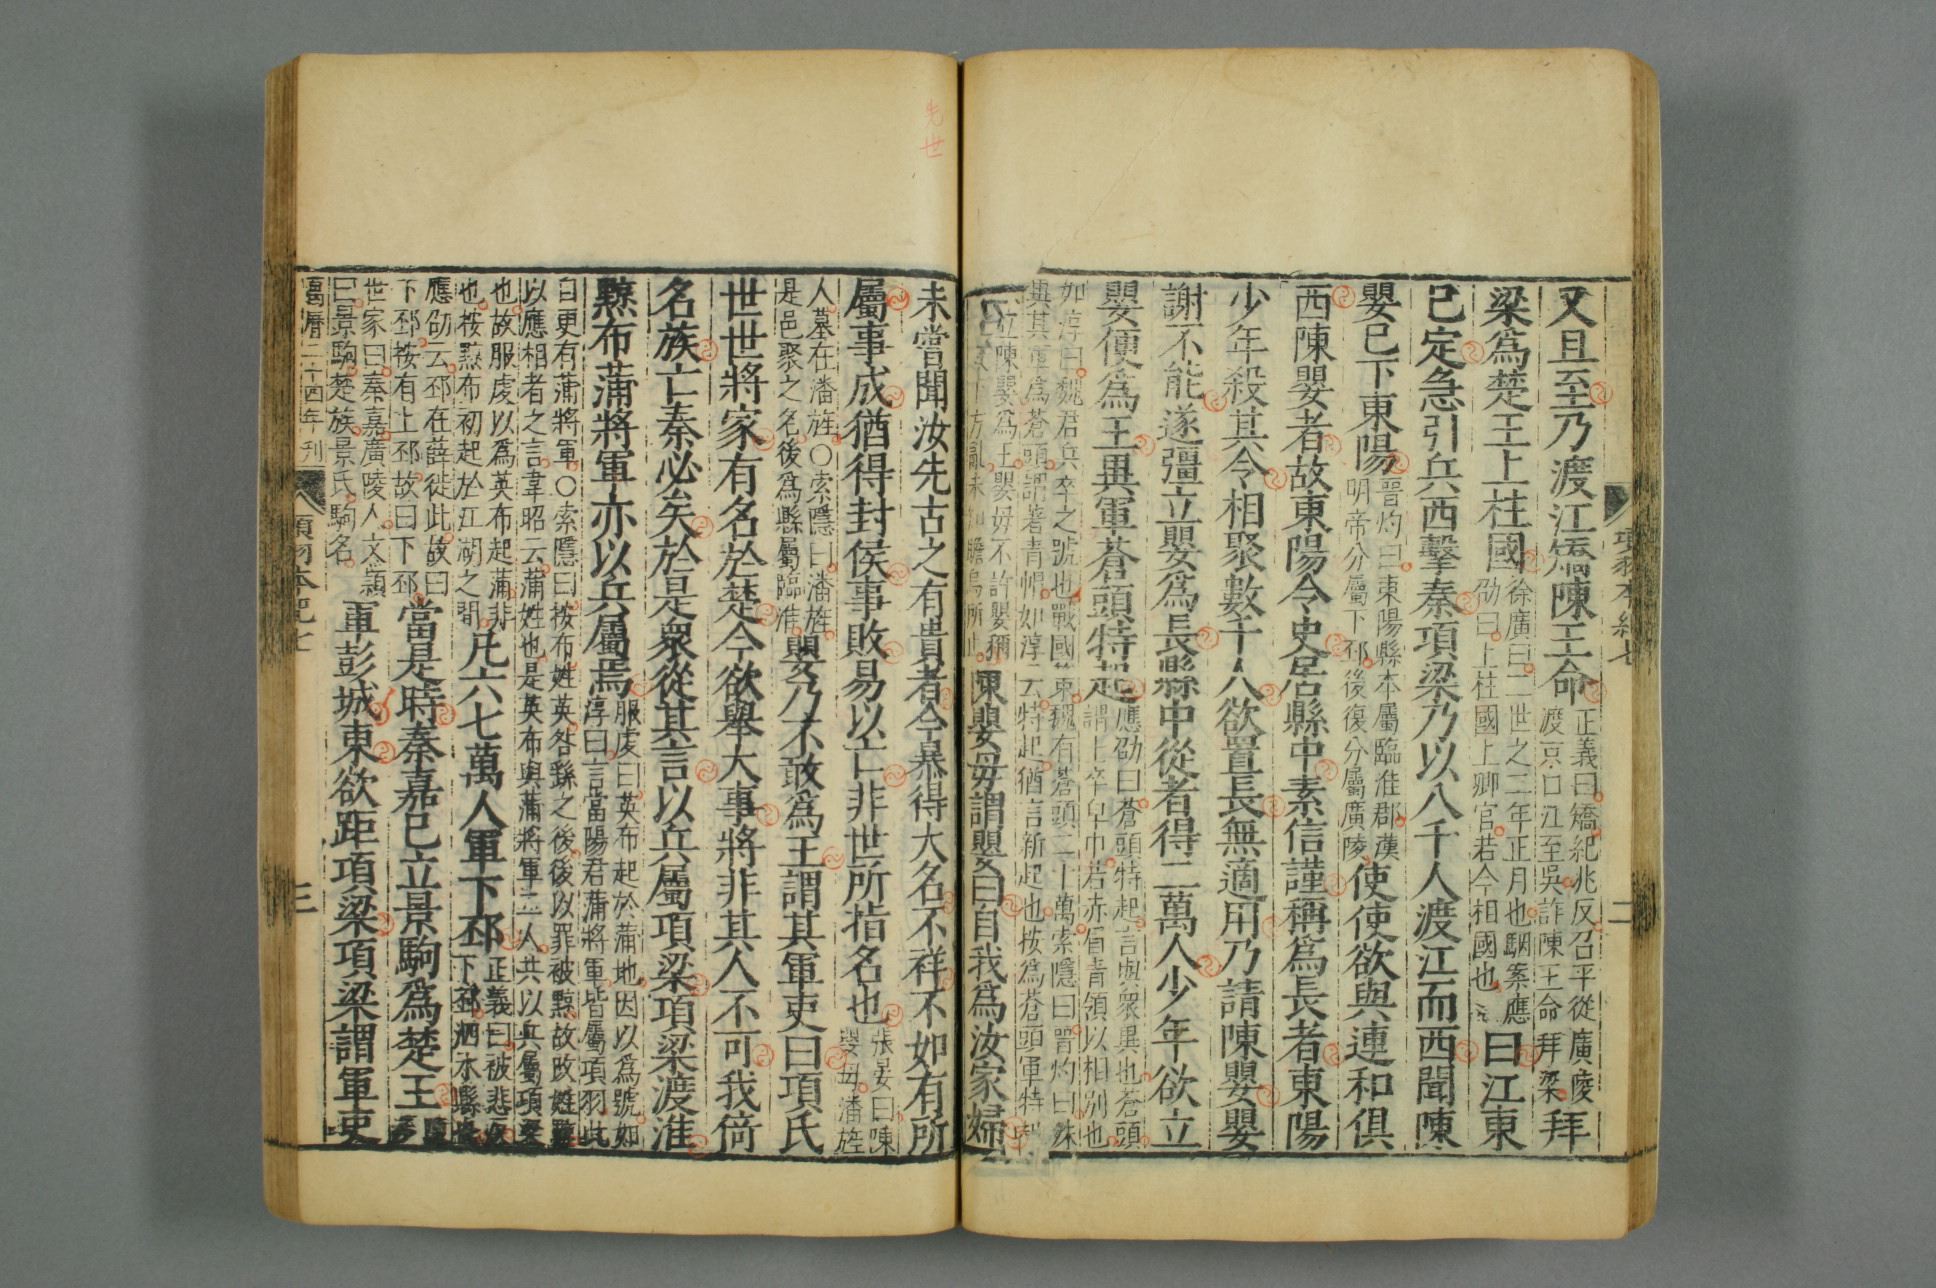 又且至乃渡江矯陳王命正義曰矯紀兆反召平從廣陵渡京口江至吳詐陳王命拜梁拜
梁爲楚王上柱國徐廣曰二世之二年正月也駰案應劭曰上柱國上卿官若今相國也曰江東
已定急引兵西擊秦項梁乃以八千人渡江而西聞陳
嬰已下東陽晉灼曰東陽縣本屬臨淮郡漢明帝分屬下邳後復分屬廣陵使使欲與連和俱
西陳嬰者故東陽令史居縣中素信謹稱爲長者東陽
少年殺其令相聚數千人欲置長無適用乃請陳嬰嬰
謝不能遂彊立嬰爲長縣中從者得二萬人少年欲立
嬰便爲王異軍蒼頭特起應劭曰蒼頭特起言與衆異也蒼頭謂士卒皁巾若赤眉青領以相別也
如淳曰魏君兵卒之號也戰國策魏有蒼頭二十萬索隱曰晉灼曰殊
異其軍爲蒼頭謂著青帽如淳云特起猶言新起也按爲蒼頭軍特起
立陳嬰爲王嬰母不許嬰稱天下方亂未知瞻烏所止陳嬰母謂嬰曰自我爲汝家婦
未嘗聞汝先古之有貴者今暴得大名不祥不如有所
屬事成猶得封侯事敗易以亡非世所指名也張晏曰陳嬰母潘旌
人墓在潘旌○索隱曰潘旌是邑聚之名後爲縣屬臨淮嬰乃不敢爲王謂其軍吏曰項氏
世世將家有名於楚今欲舉大事將非其人不可我倚
名族亡秦必矣於是衆從其言以兵屬項梁項梁渡淮
黥布蒲將軍亦以兵屬焉服虔曰英布起於蒲地因以爲號如淳曰言當陽君蒲將軍皆屬項羽此
自更有蒲將軍○索隱曰按布姓英咎繇之後後以罪被黥故改姓黥
以應相者之言韋昭云蒲姓也是英布與蒲將軍二人共以兵屬項梁
也故服虔以爲英布起蒲非也按黥布初起於江湖之間凡六七萬人軍下邳正義曰被悲反下邳泗水縣也
應劭云邳在薛徙此故曰下邳按有上邳故曰下邳當是時秦嘉已立景駒爲楚王
世家曰秦嘉廣陵人文穎曰景駒楚族景氏駒名軍彭城東欲距項梁項梁謂軍吏
項羽本紀七
二
萬曆二十四年刊
項羽本紀七
三
先世